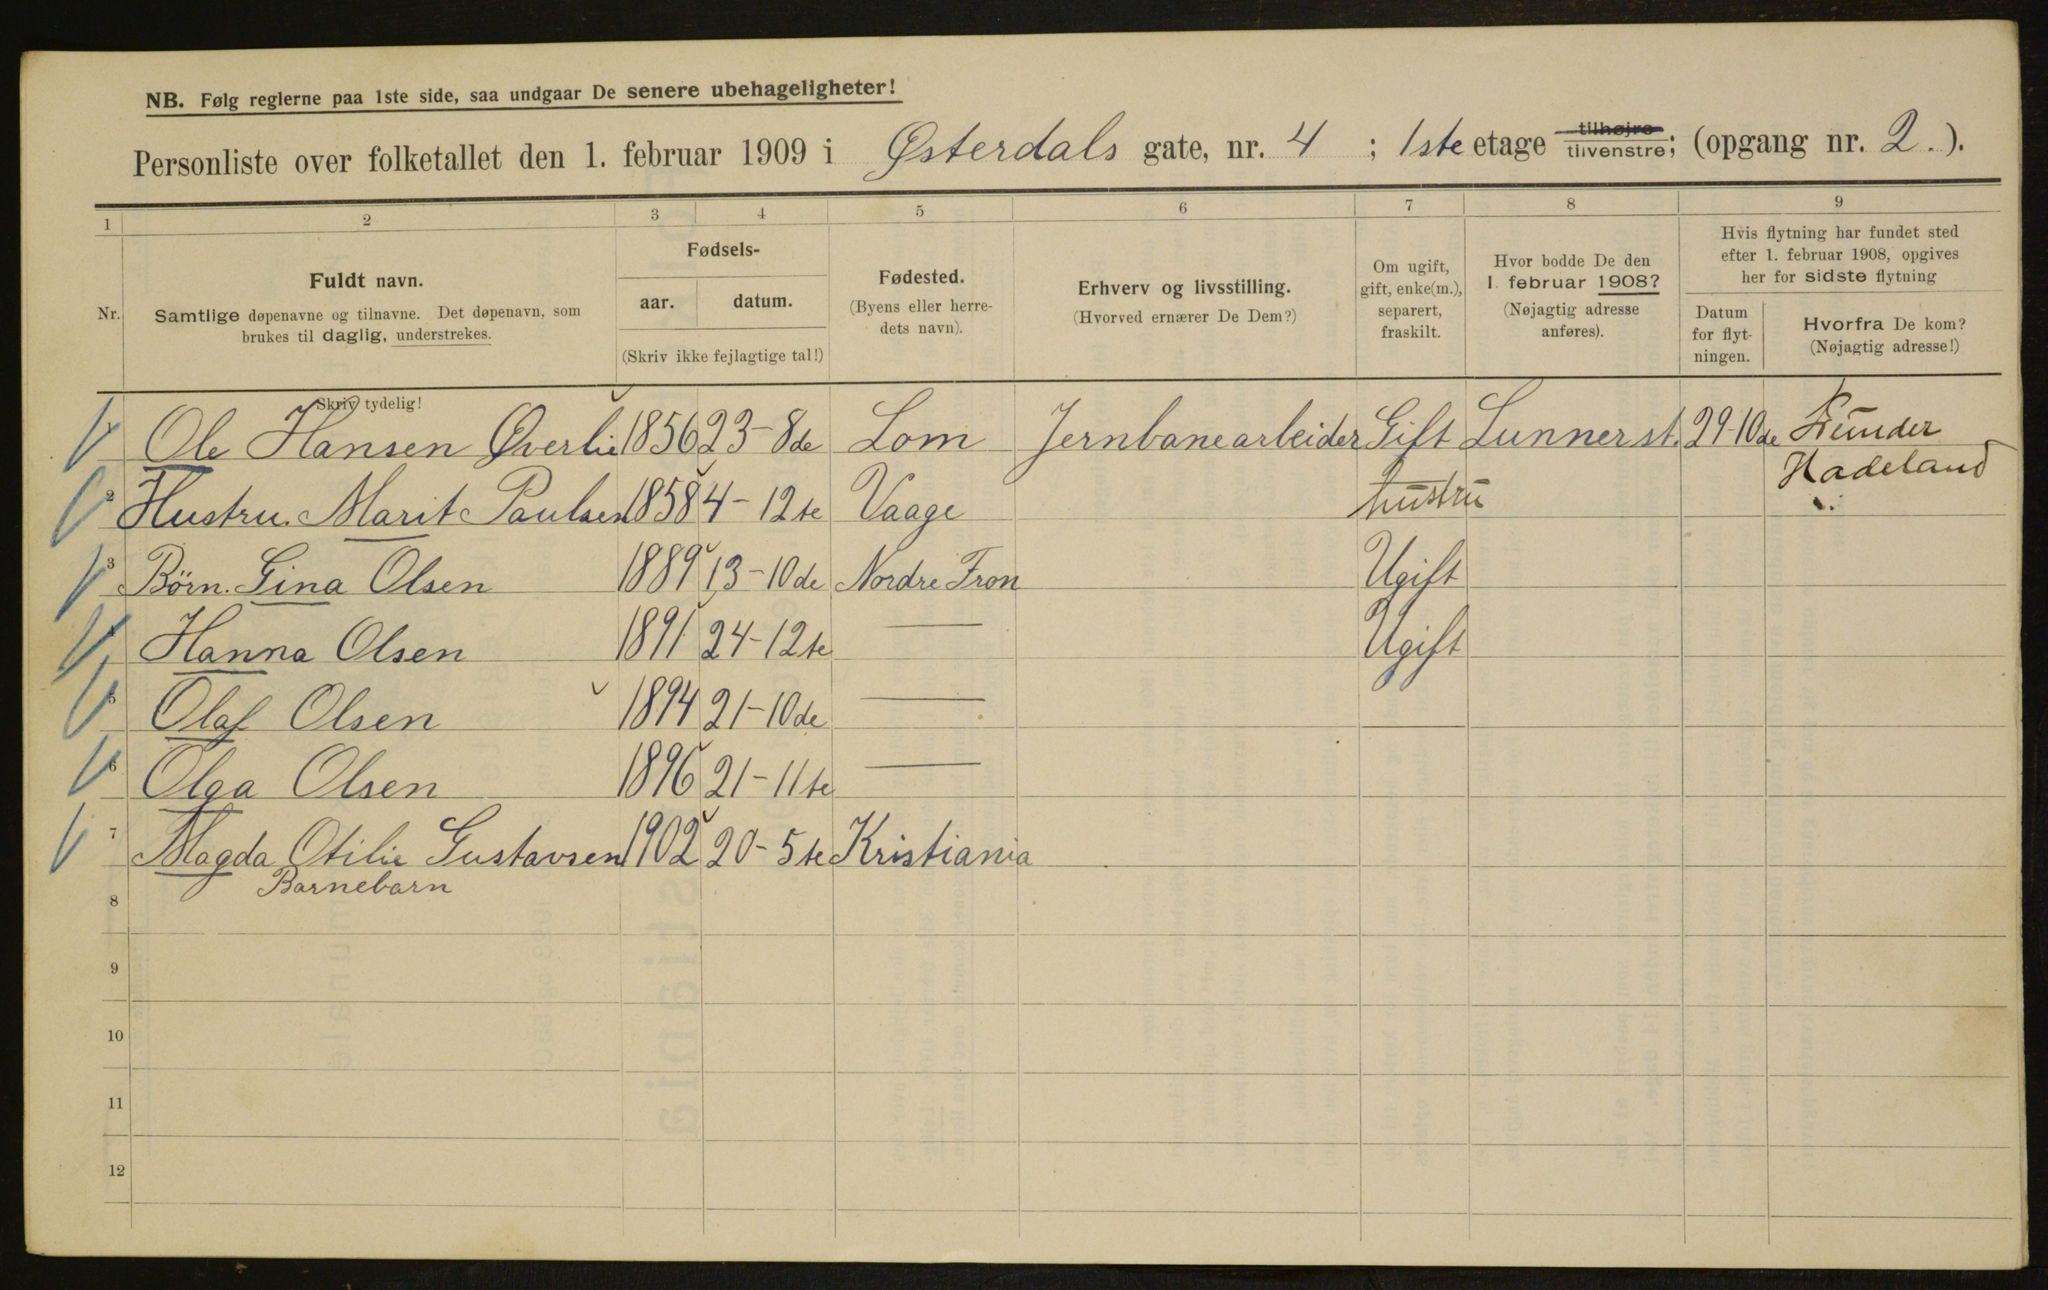 NB. Følg reglerne paa 1ste side, saa undgaar De senere ubehageligheter!
Personliste over folketallet den 1. februar 1909 i Østerdals gate, nr. 4 ; 1ste etage tilhøjre tilvenstre; (opgang nr. 2.).
1 2 3 4 5 6 7 8 9
Nr.
Fuldt navn.
Samtlige døpenavne og tilnavne. Det døpenavn, som
brukes til daglig, understrekes.
Skriv tydelig!
Fødsels-
aar. datum.
(Skriv ikke fejlagtige tal!)
Fødested.
(Byens eller herre-
dets navn).
Erhverv og livsstilling.
(Hvorved ernærer De Dem?)
Om ugift,
gift, enke(m.),
separert,
fraskilt.
Hvor bodde De den
1. februar 1908?
(Nøjagtig adresse
anføres).
Hvis flytning har fundet sted
efter 1. februar 1908, opgives
her for sidste flytning
Datum
for flyt-
ningen.
Hvorfra De kom?
(Nøjagtig adresse!)
1 Ole Hansen Øverlie 1856 23-8de Lom Jernbanearbeider Gift Lunner st. 29-10de
Hadeland
2 Hustru. Marit Paulsen 1858 4-12te Vaage hustru
3 Børn. Gina Olsen 1889 13-10de Nordre Fron Ugift
4 Hanna Olsen 1891 24-12te — Ugift
5 Olaf Olsen 1894 21-10de —
6 Olga Olsen 1896 21-11te —
7 Magda Otilie Gustavsen 1902 20-5te Kristiania
Barnebarn
8
9
10
11
12